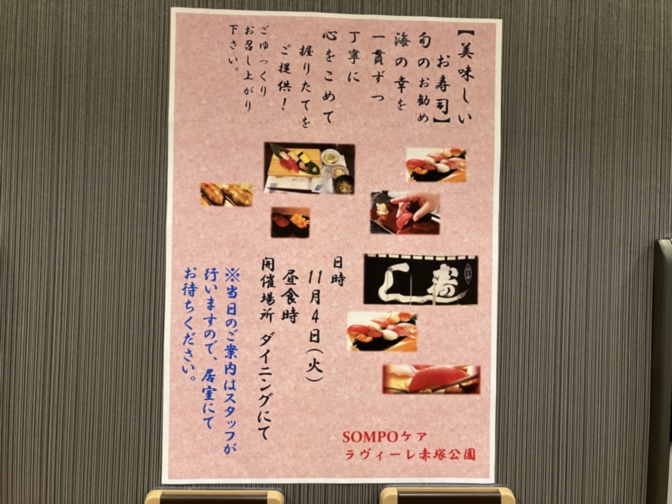 【美味しい
お寿司】
旬のお勧め
海の幸を
一貫ずつ
丁寧に
心をこめて
握りたてを
ご提供！
ごゆっくり
お召し上がり
下さい。
寿し
日時
11月4日（火）
昼食時
開催場所 ダイニングにて
※当日のご案内はスタッフが
行いますので、居室にて
お待ちください。
SOMPOケア
ラヴィーレ赤塚公園